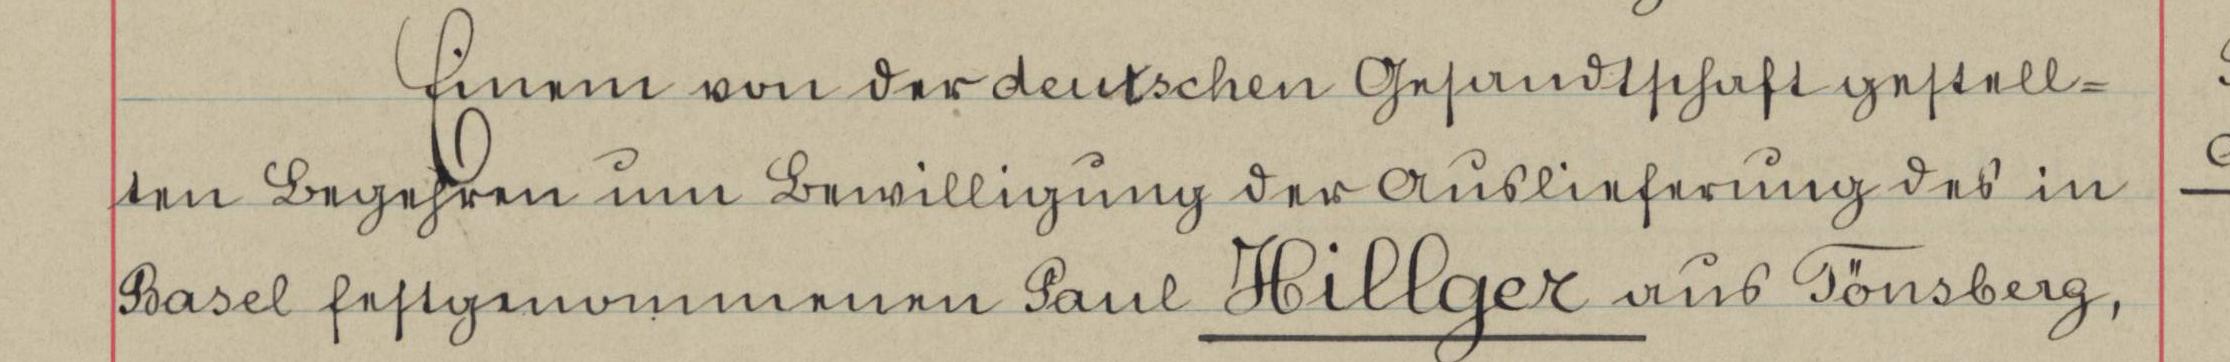 Einem von der deutschen Gesandtschaft gestell=
ten Begehren um Bewilligung der Auslieferung des in
Basel festgenommenen Paul Hillger aus Tönsberg,